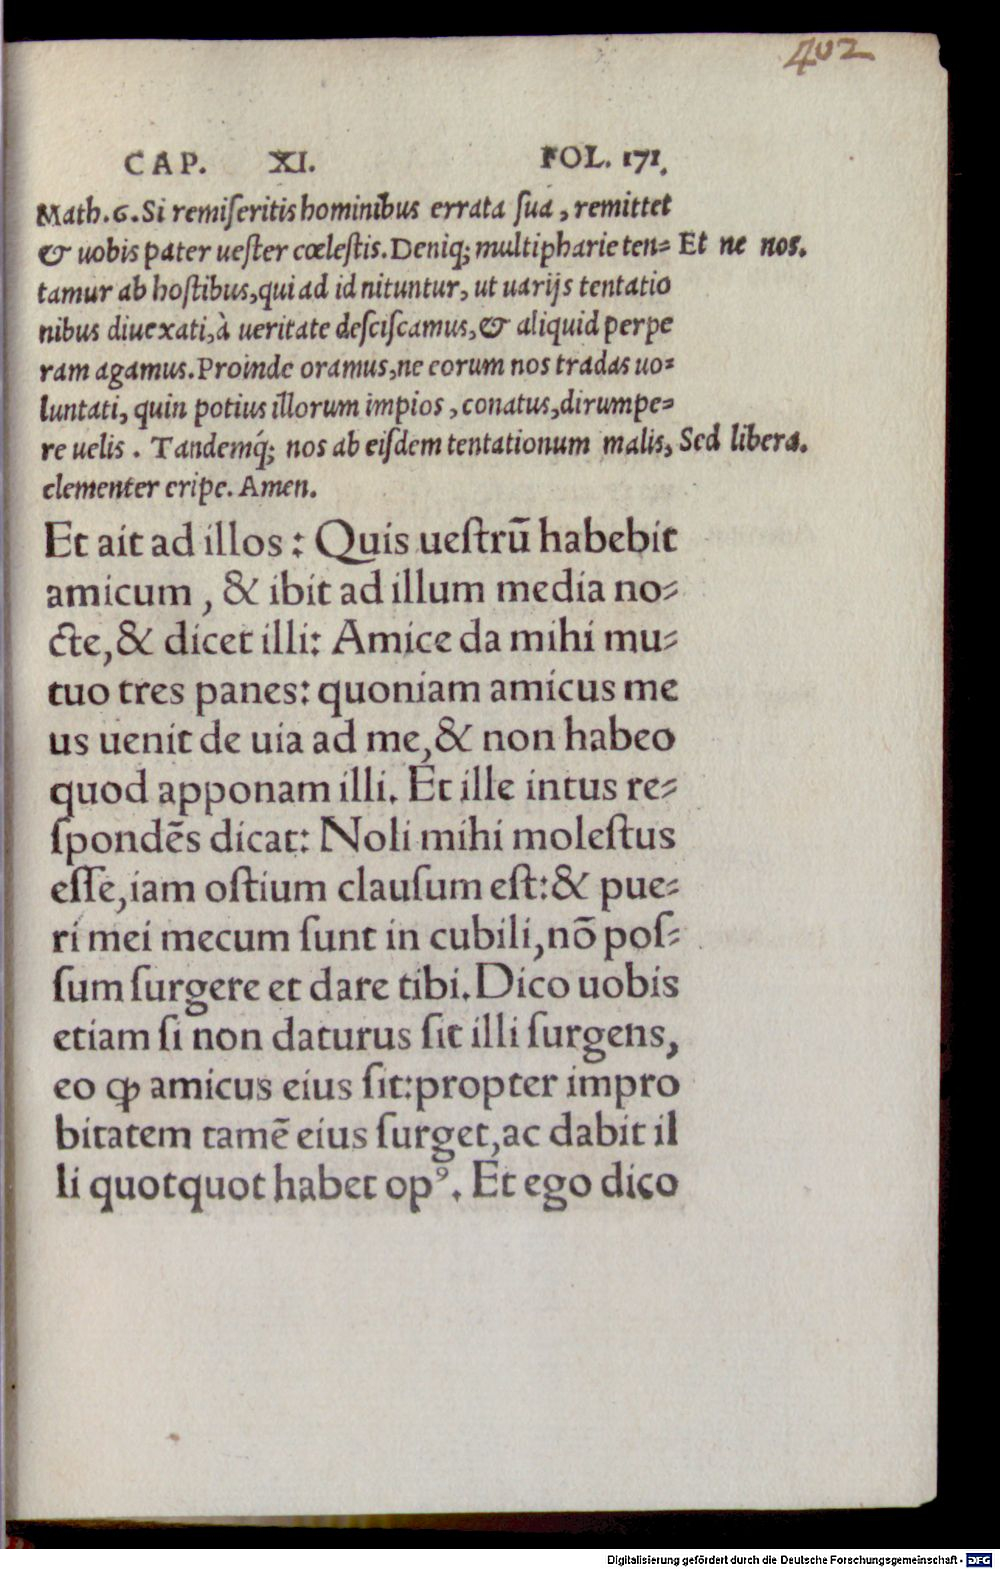 402
CAP. XI. FOL. 171.
Math.6.Si remiſeritis hominibus errata ſua, remittet
& uobis pater ueſter cœleſtis.Deniq; multipharie ten= Et ne nos.
tamur ab hoſtibus,qui ad id nituntur, ut uarijs tentatio
nibus diuexati,à ueritate deſciſcamus,& aliquid perpe
ram agamus.Proinde oramus,ne eorum nos tradas uo=
luntati, quin potius illorum impios, conatus,dirumpe=
re uelis. Tandemq́; nos ab eiſdem tentationum malis, Sed libera.
clementer eripe. Amen.
Et ait ad illos: Quis ueſtrū habebit
amicum, & ibit ad illum media no=
cte,& dicet illi: Amice da mihi mu=
tuo tres panes: quoniam amicus me
us uenit de uia ad me,& non habeo
quod apponam illi. Et ille intus re=
ſpondēs dicat: Noli mihi moleſtus
eſſe,iam oſtium clauſum eſt:& pue=
ri mei mecum ſunt in cubili,nō poſ=
ſum ſurgere et dare tibi.Dico uobis
etiam ſi non daturus ſit illi ſurgens,
eo ꝙ amicus eius ſit:propter impro
bitatem tamē eius ſurget,ac dabit il
li quotquot habet opꝰ. Et ego dico
Digitalisierung gefördert durch die Deutsche Forschungsgemeinschaft - DFG